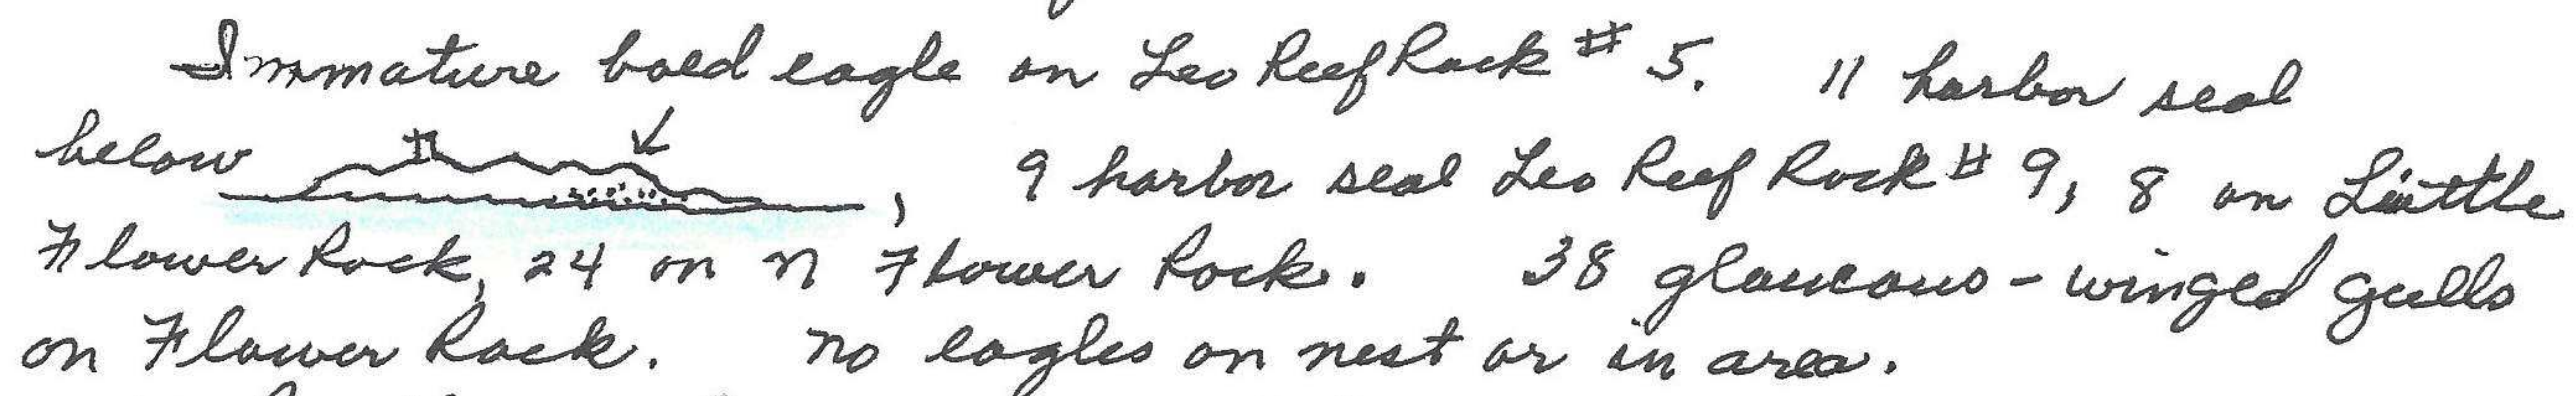 Immature bald eagle on Leo Reef Rock # 5. 11 harbor seal
below , 9 harbor seal Leo Reef Rock # 9, 8 on Little
Flower Rock, 24 on N Flower Rock. 38 glaucous-winged gulls
on Flower Rock. No eagles on nest or in area.